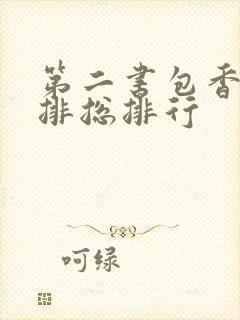 第二书包香
排总排行
呵绿